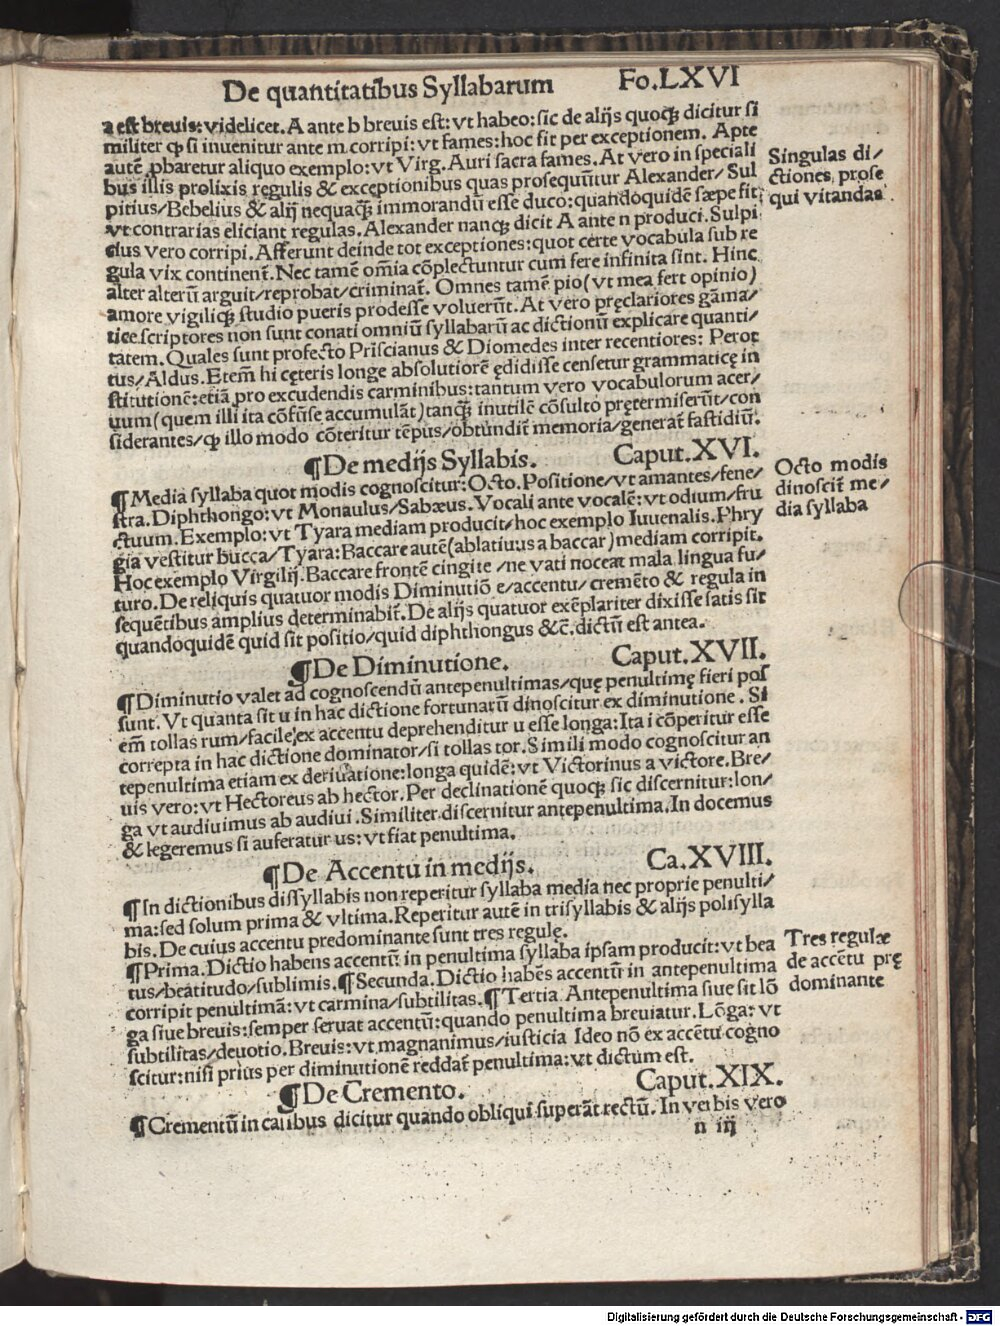 De quantitatibus Syllabarum Fo.LXVI
a est breuis: videlicet. A ante b breuis est: vt habeo: sic de alijs quoqꝫ dicitur si
militer ꝙ si inuenitur ante m corripi: vt fames: hoc fit per exceptionem. Apte
autē ꝓbaretur aliquo exemplo: vt Virg. Auri sacra fames. At vero in speciali
bus illis prolixis regulis & exceptionibus quas prosequūtur Alexander/ Sul
pitius/Bebelius & alij nequaqꝫ immorandū esse duco: quandoquidē sæpe fit
vt contrarias eliciant regulas. Alexander nanqꝫ dicit A ante n produci. Sulpi
cius vero corripi. Afferunt deinde tot exceptiones: quot certe vocabula sub re
gula vix continent̄. Nec tamē om̄ia cōplectuntur cum fere infinita sint. Hinc
alter alterū arguit/reprobat/criminat̄. Omnes tamē pio (vt mea fert opinio)
amore vigiliqꝫ studio pueris prodesse voluerūt. At vero pręclariores gāma/
tice scriptores non sunt conati omniū syllabarū ac dictionū explicare quanti/
tatem. Quales sunt profecto Priscianus & Diomedes inter recentiores: Perot
tus/Aldus. Etem̄ hi cęteris longe absolutiorē ędidisse censetur grammaticę in
stitutionē: etiā pro excudendis carminibus: tantum vero vocabulorum acer/
uum (quem illi ita cōfūse accumulāt) tanqꝫ inutilē cōsulto prętermiserūt/con
siderantes/ꝙ illo modo cōteritur tēpus/obtundit̄ memoria/generat̄ fastidiū.
Singulas di/
ctiones prose
qui vitandas
¶De medijs Syllabis. Caput.XVI.
¶Media syllaba quot modis cognoscitur: Octo. Positione/vt amantes/fene/
stra. Diphthongo: vt Monaulus/Sabæus. Vocali ante vocalē: vt odium/fru
ctuum. Exemplo: vt Tyara mediam producit/hoc exemplo Iuuenalis. Phry
gia vestitur bucca/Tyara: Baccare autē (ablatiuus a baccar) mediam corripit.
Hoc exemplo Virgilij. Baccare frontē cingite /ne vati noceat mala lingua fu/
turo. De reliquis quatuor modis Diminutiō e/accentu/cremēto & regula in
sequētibus amplius determinabit̄. De alijs quatuor exēplariter dixisse satis sit
quandoquidē quid sit positio/quid diphthongus &c̄. dictū est antea.
Octo modis
dinoscit̄ me/
dia syllaba
¶De Diminutione. Caput.XVII.
¶Diminutio valet ad cognoscendū antepenultimas/quę penultimę fieri pos
sunt. Vt quanta sit u in hac dictione fortunarū dinoscitur ex diminutione . Si
em̄ tollas rum/facile ex accentu deprehenditur u esse longa: Ita i cōperitur esse
correpta in hac dictione dominator/si tollas tor. Simili modo cognoscitur an
tepenultima etiam ex deriuatione: longa quidē: vt Victorinus a victore. Bre/
uis vero: vt Hectoreus ab hector. Per declinationē quoqꝫ sic discernitur: lon/
ga vt audiuimus ab audiui. Similiter discernitur antepenultima. In docemus
& legeremus si auferatur us: vt fiat penultima.
¶De Accentu in medijs. Ca.XVIII.
¶In dictionibus dissyllabis non reperitur syllaba media nec proprie penulti/
ma: sed solum prima & vltima. Reperitur autē in trisyllabis & alijs polisylla
bis. De cuius accentu predominante sunt tres regulę.
¶Prima. Dictio habens accentū in penultima syllaba ipsam producit: vt bea
tus/beatitudo/sublimis. ¶Secunda. Dictio habēs accentū in antepenultima
corripit penultimā: vt carmina/subtilitas. ¶Tertia. Antepenultima siue sit lō
ga siue breuis: semper seruat accentū: quando penultima breuiatur. Lōga: vt
subtilitas/deuotio. Breuis: vt magnanimus/iusticia Ideo nō ex accētu cogno
scitur: nisi prius per diminutionē reddat̄ penultima: vt dictum est.
Tres regulæ
de accētu prę
dominante
¶De Cremento. Caput.XIX.
¶Crementū in casibus dicitur quando obliqui superāt rectū. In verbis vero
n iij
Digitalisierung gefördert durch die Deutsche Forschungsgemeinschaft - DFG